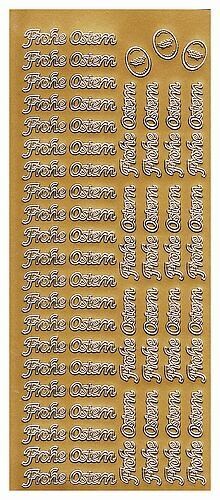 Frohe Ostern
Frohe Ostern
Frohe Ostern
Frohe Ostern
Frohe Ostern
Frohe Ostern
Frohe Ostern
Frohe Ostern
Frohe Ostern
Frohe Ostern
Frohe Ostern
Frohe Ostern
Frohe Ostern
Frohe Ostern
Frohe Ostern
Frohe Ostern
Frohe Ostern
Frohe Ostern
Frohe Ostern
Frohe Ostern
Frohe Ostern
Frohe Ostern
Frohe Ostern
Frohe Ostern
Frohe Ostern
Frohe Ostern
Frohe Ostern
Frohe Ostern
Frohe Ostern
Frohe Ostern
Frohe Ostern
Frohe Ostern
Frohe Ostern
Frohe Ostern
Frohe Ostern
Frohe Ostern
Frohe Ostern